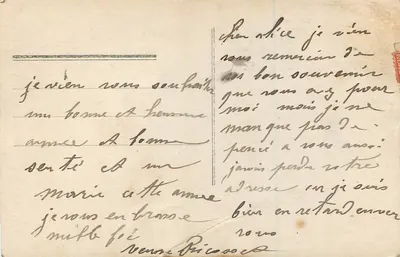 je vien vous souhaiter
une bonne et heureuse
année et bonne
senté et un
marie cette année
je vous enbrasse
mille foi
cher alice je vien
vous remercier de
un bon souvenir
que vous avez pour
moi mais je ne
manque pas de
pencé a vous aussi
javais perdu votre
adresse car je suis
bien en retard enver
vous